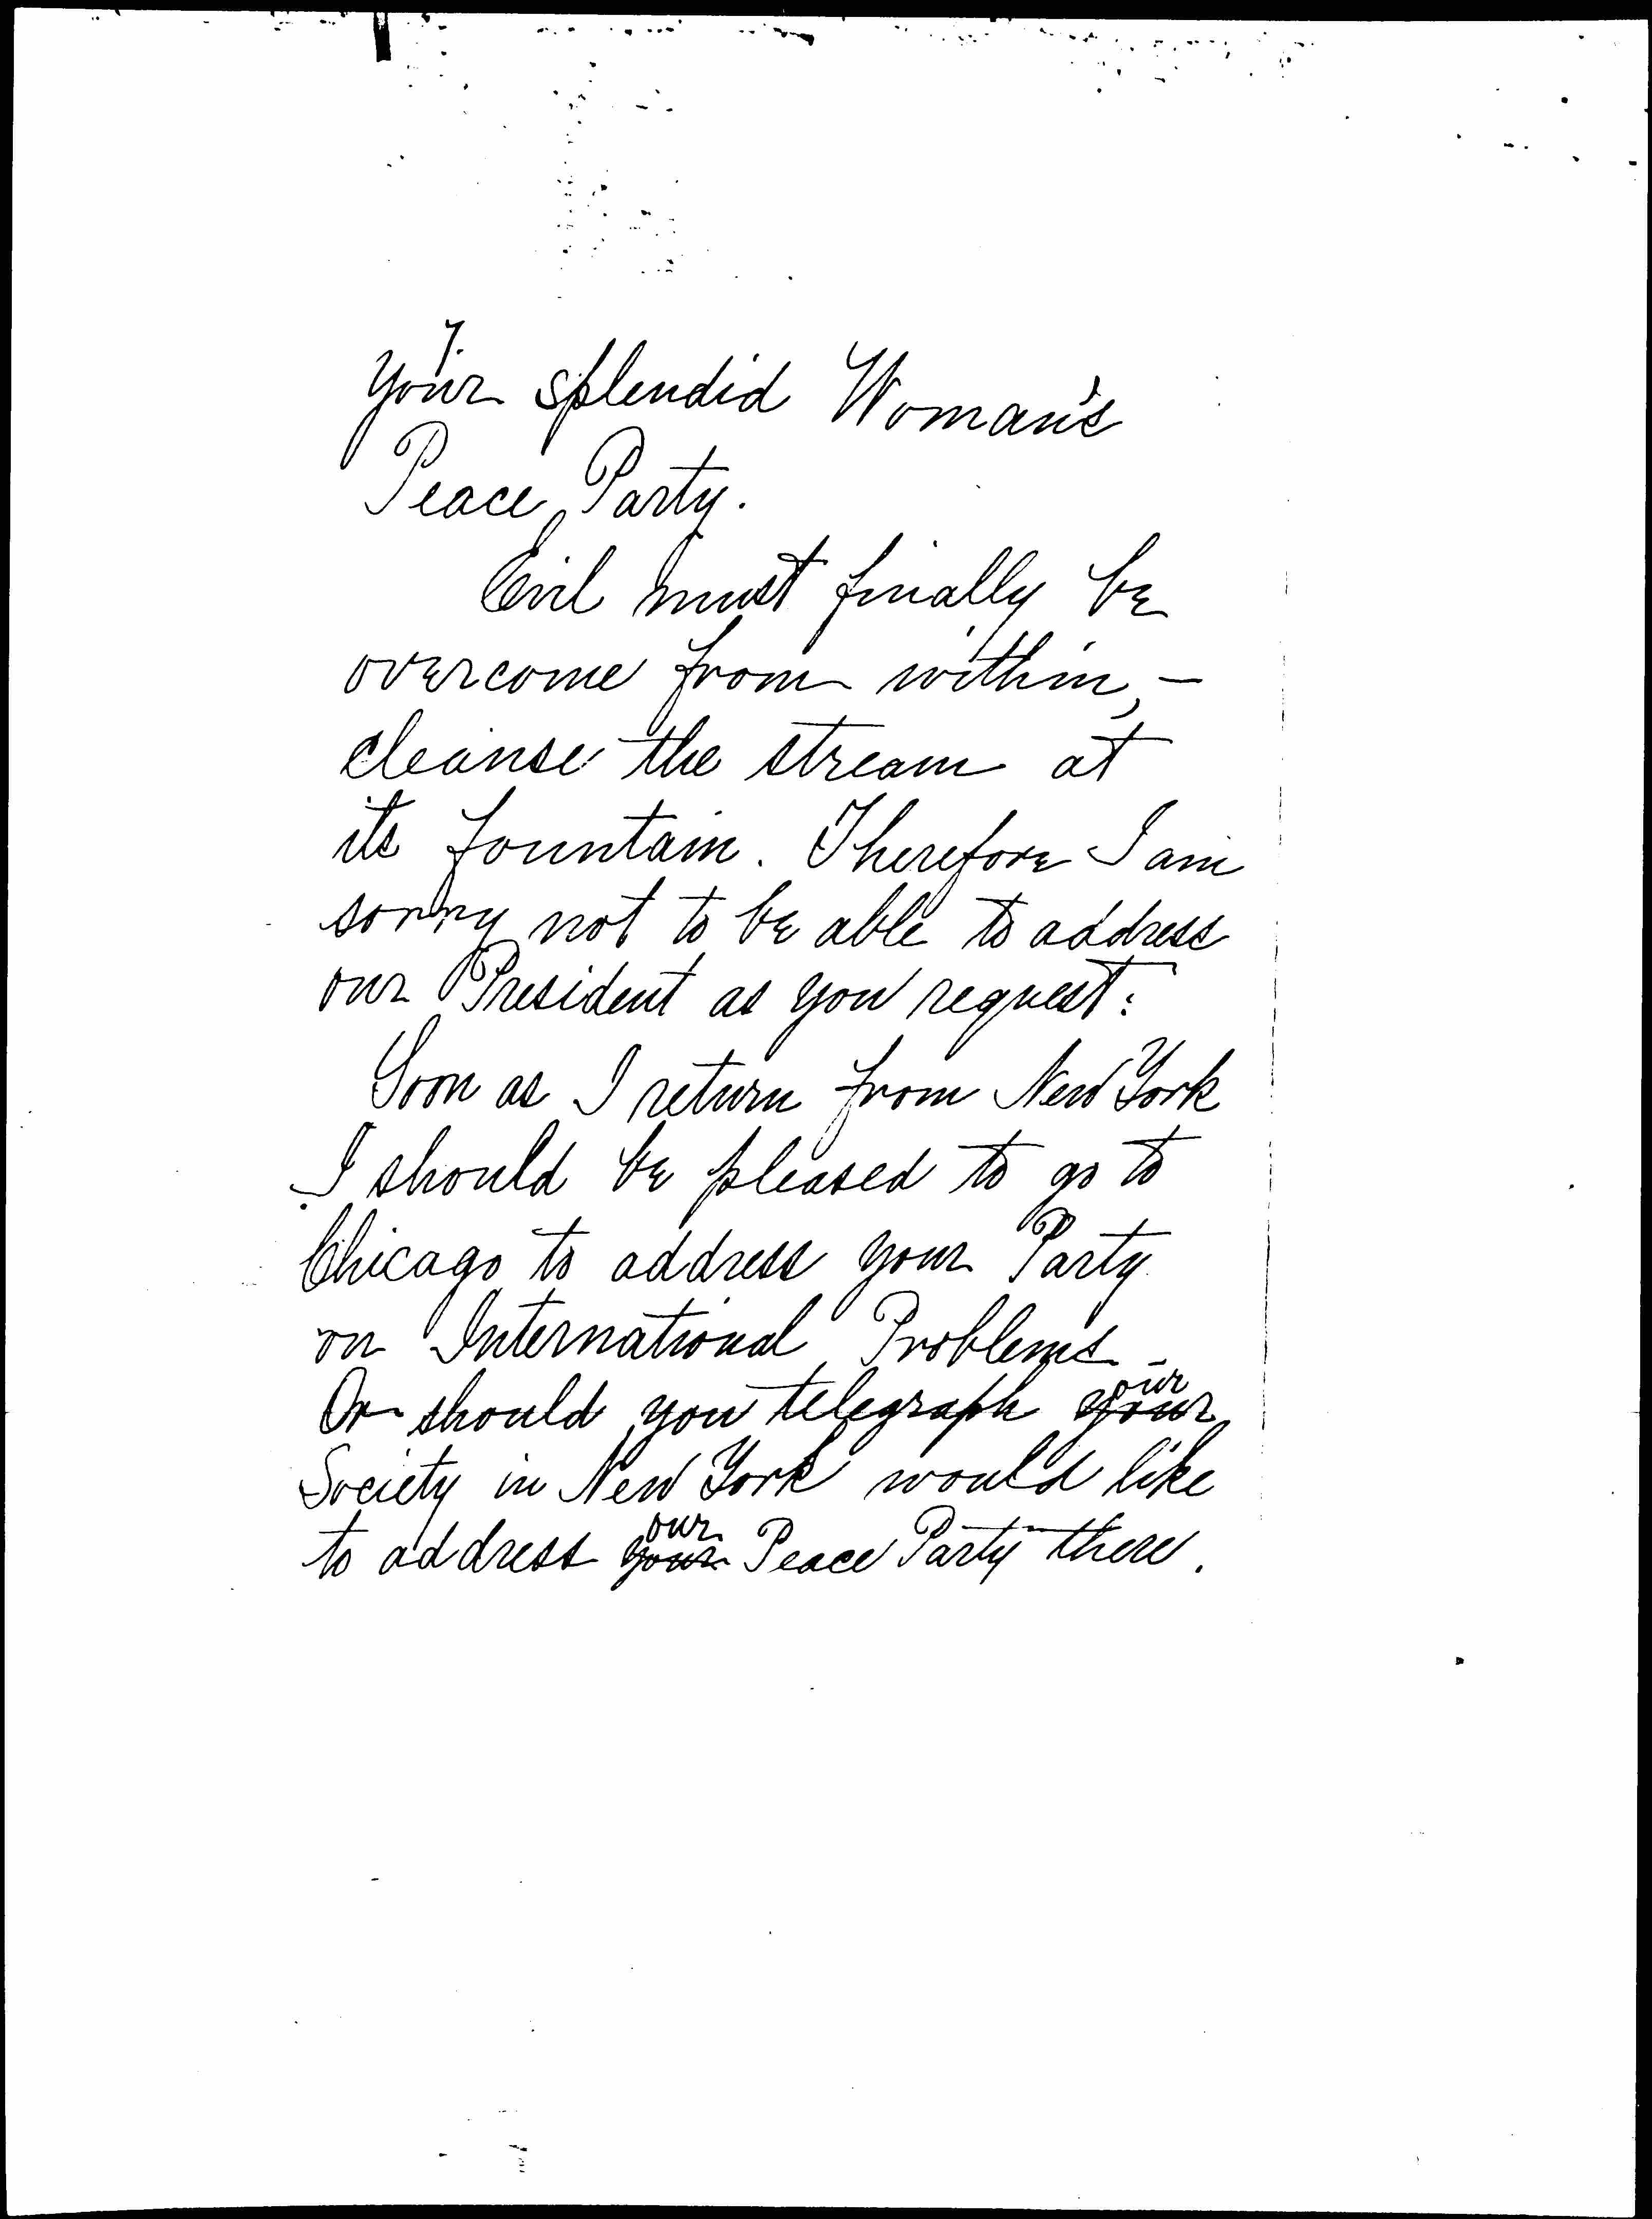 7.
Your splendid Woman's
Peace Party.
Evil must finally be
overcome from within, -
cleanse the stream at
its fountain. Therefore I am
sorry not to be able to address
our President as you request:
Soon as I return from New York
I should be pleased to go to
Chicago to address your Party
on International Problems -
our
Or should you telegraph your
Society in New York would like
our
to address your Peace Party there.